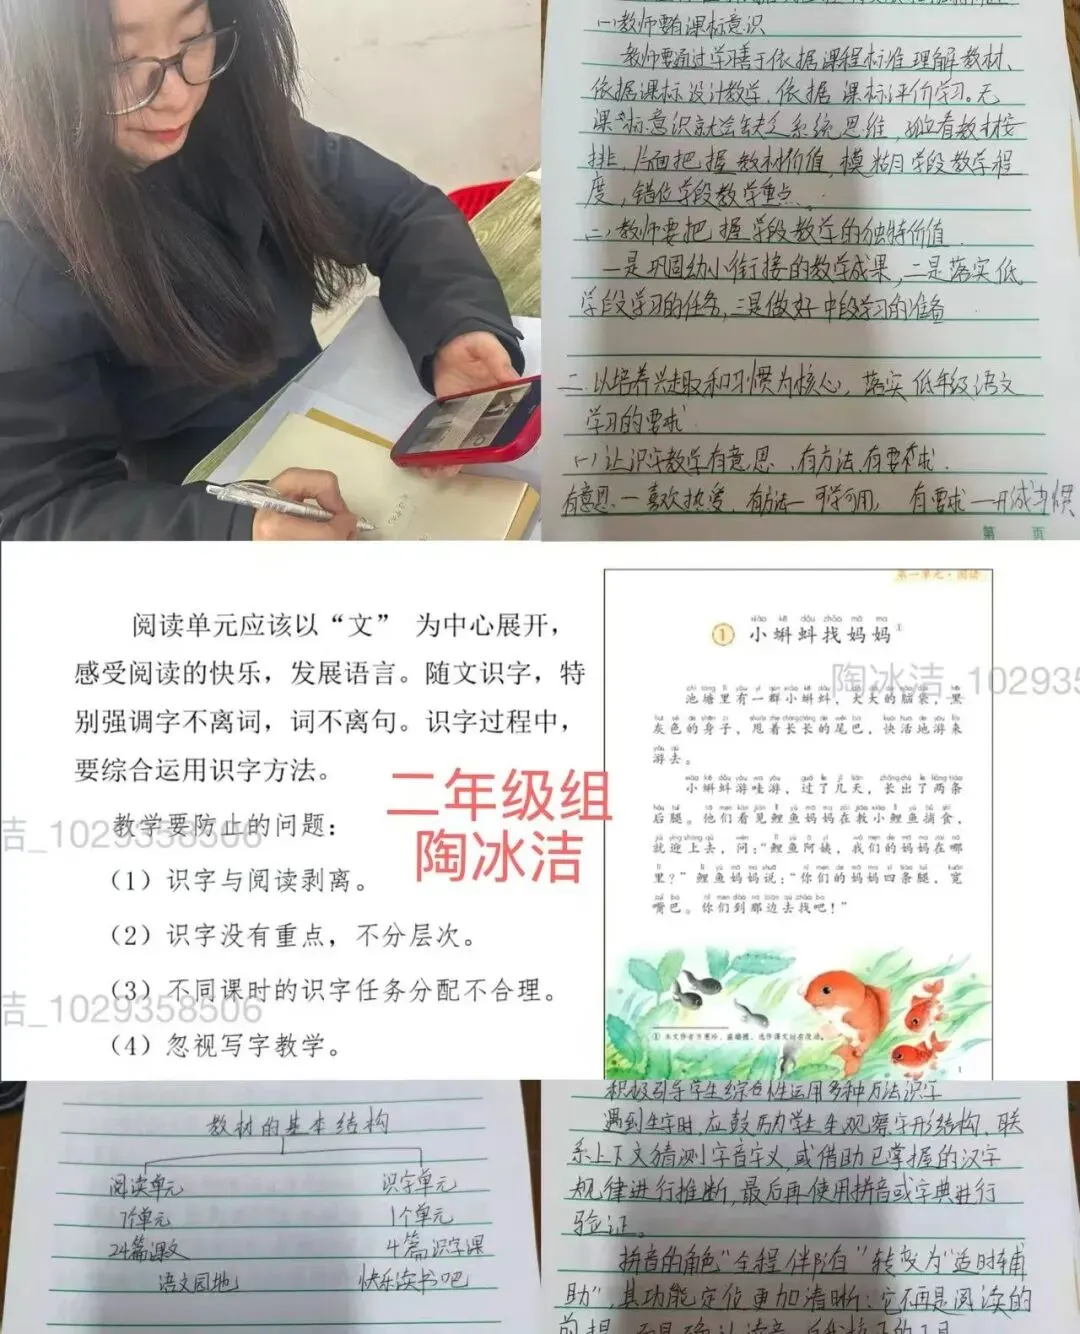 (一)教师要有课标意识
教师要通过学习善于依据课程标准理解教材、
依据课标设计教学,依据课标评价学习。无
课标意识就会缺乏系统思维,
排,片面把握教材价值,模糊学段教学程
度,错位学段教学重点。
(二)教师要把握学段教学的独特价值
一是巩固幼小衔接的教学成果,二是落实低
学段学习的任务,三是做好中段学习的准备
二.以培养兴趣和习惯为核心,落实低年级语文
学习的要求
(一)让识字教学有意思、有方法、有要求
有意思—喜欢热爱,有方法—可学可用,有要求—形成习惯
第 页
阅读单元应该以“文” 为中心展开,
感受阅读的快乐,发展语言。随文识字,特
别强调字不离词,词不离句。识字过程中,
要综合运用识字方法。
教学要防止的问题:
(1)识字与阅读剥离。
(2)识字没有重点,不分层次。
(3)不同课时的识字任务分配不合理。
(4)忽视写字教学。
洁_1029358506
洁_1029358506
二年级组
陶冰洁
第一单元·阅读
xiǎo kē dǒu zhǎo mā ma
① 小蝌蚪找妈妈①
陶冰洁_102935
池塘里有一群小蝌蚪,大大的脑袋,黑
灰色的身子,甩着长长的尾巴,快活地游来
游去。
小蝌蚪游哇游,过了几天,长出了两条
后腿。他们看见鲤鱼妈妈在教小鲤鱼捕食,
就迎上去,问:“鲤鱼阿姨,我们的妈妈在哪
里?”鲤鱼妈妈说:“你们的妈妈四条腿,宽
嘴巴。你们到那边去找吧!”
1
教材的基本结构
阅读单元 识字单元
7个单元 1个单元
24篇课文 4篇识字课
语文园地 快乐读书吧
积极引导学生综合性运用多种方法识字
遇到生字时,应鼓励学生先观察字形结构,联
系上下文猜测字音字义,或借助已掌握的汉字
规律进行推断,最后再使用拼音或字典进行
验证。
拼音的角色“全程伴随”转变为“适时辅
助”,其功能定位更加清晰:它不再是阅读的